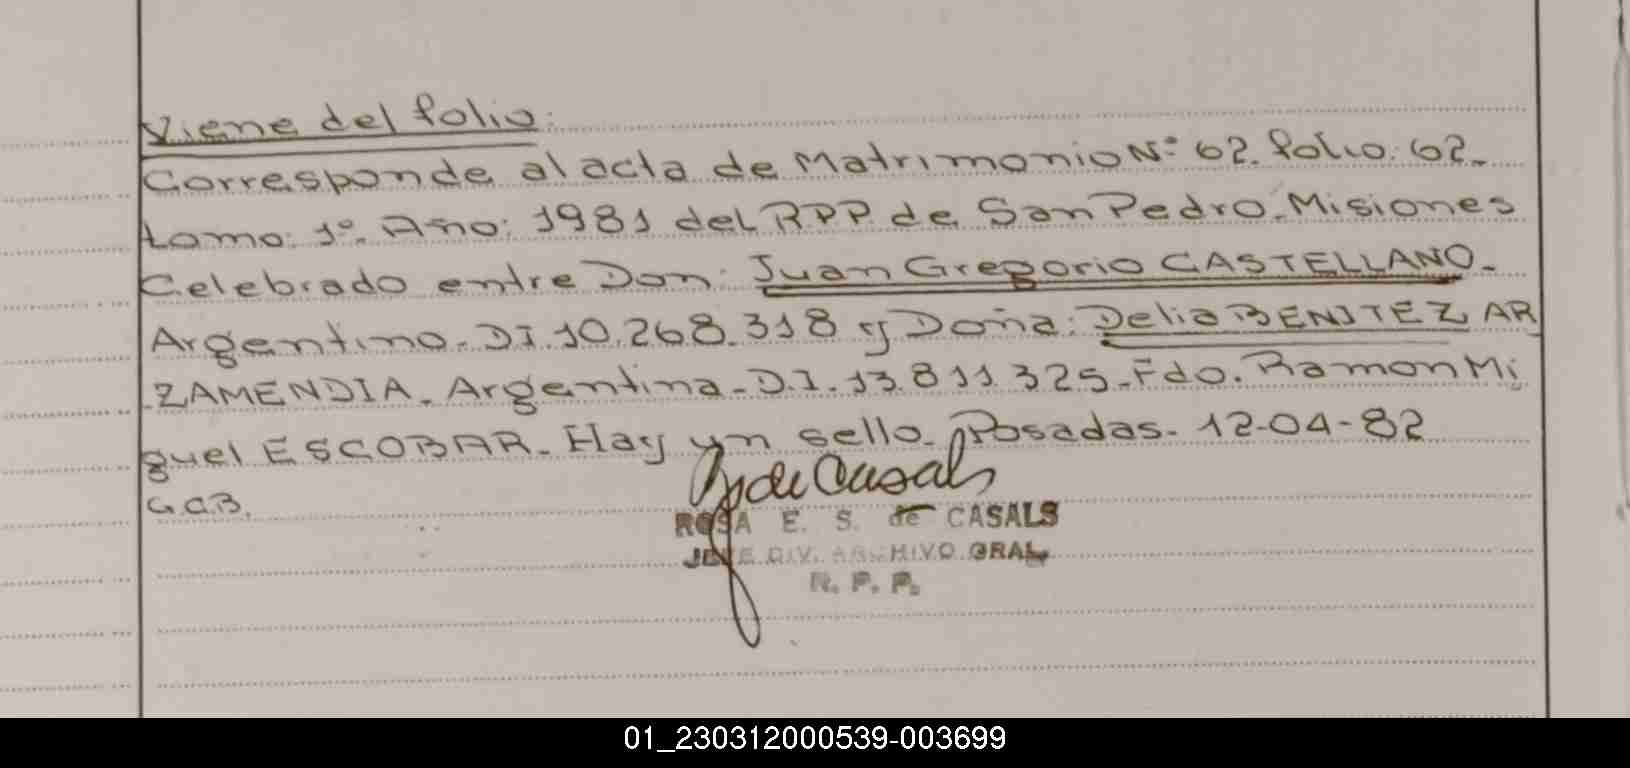 Viene del folio:
Corresponde al acta de Matrimonio Nº 62. folio: 62.
tomo: 1º. Año: 1981 del RPP. de San Pedro. Misiones
Celebrado entre Don: Juan Gregorio CASTELLANO.
Argentino. DI. 10.268.318 y Doña: Delia BENITEZ AR
ZAMENDIA. Argentina. D.I. 13.811.325. Fdo. Ramon Mi
guel ESCOBAR. Hay un sello. Posadas. 12-04-82
G.C.B.
de Casals
ROSA E. S. de CASALS
JEFE DIV. ARCHIVO GRAL.
R. P. P.
01_230312000539-003699